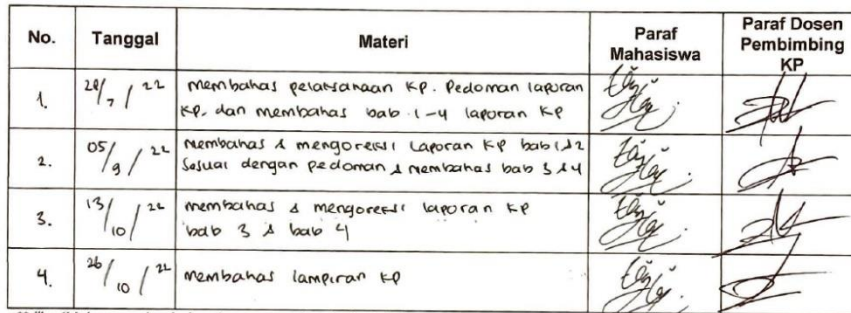 No. Tanggal Materi Paraf Mahasiswa Paraf Dosen Pembimbing KP
1. 28/7/22 membahas pelaksanaan KP. Pedoman laporan
KP. dan membahas bab 1-4 laporan KP
2. 05/9/22 membahas & mengoreksi Laporan KP bab 1&2
Sesuai dengan pedoman & membahas bab 3&4
3. 13/10/22 membahas & mengoreksi laporan KP
bab 3 & bab 4
4. 26/10/22 membahas lampiran KP